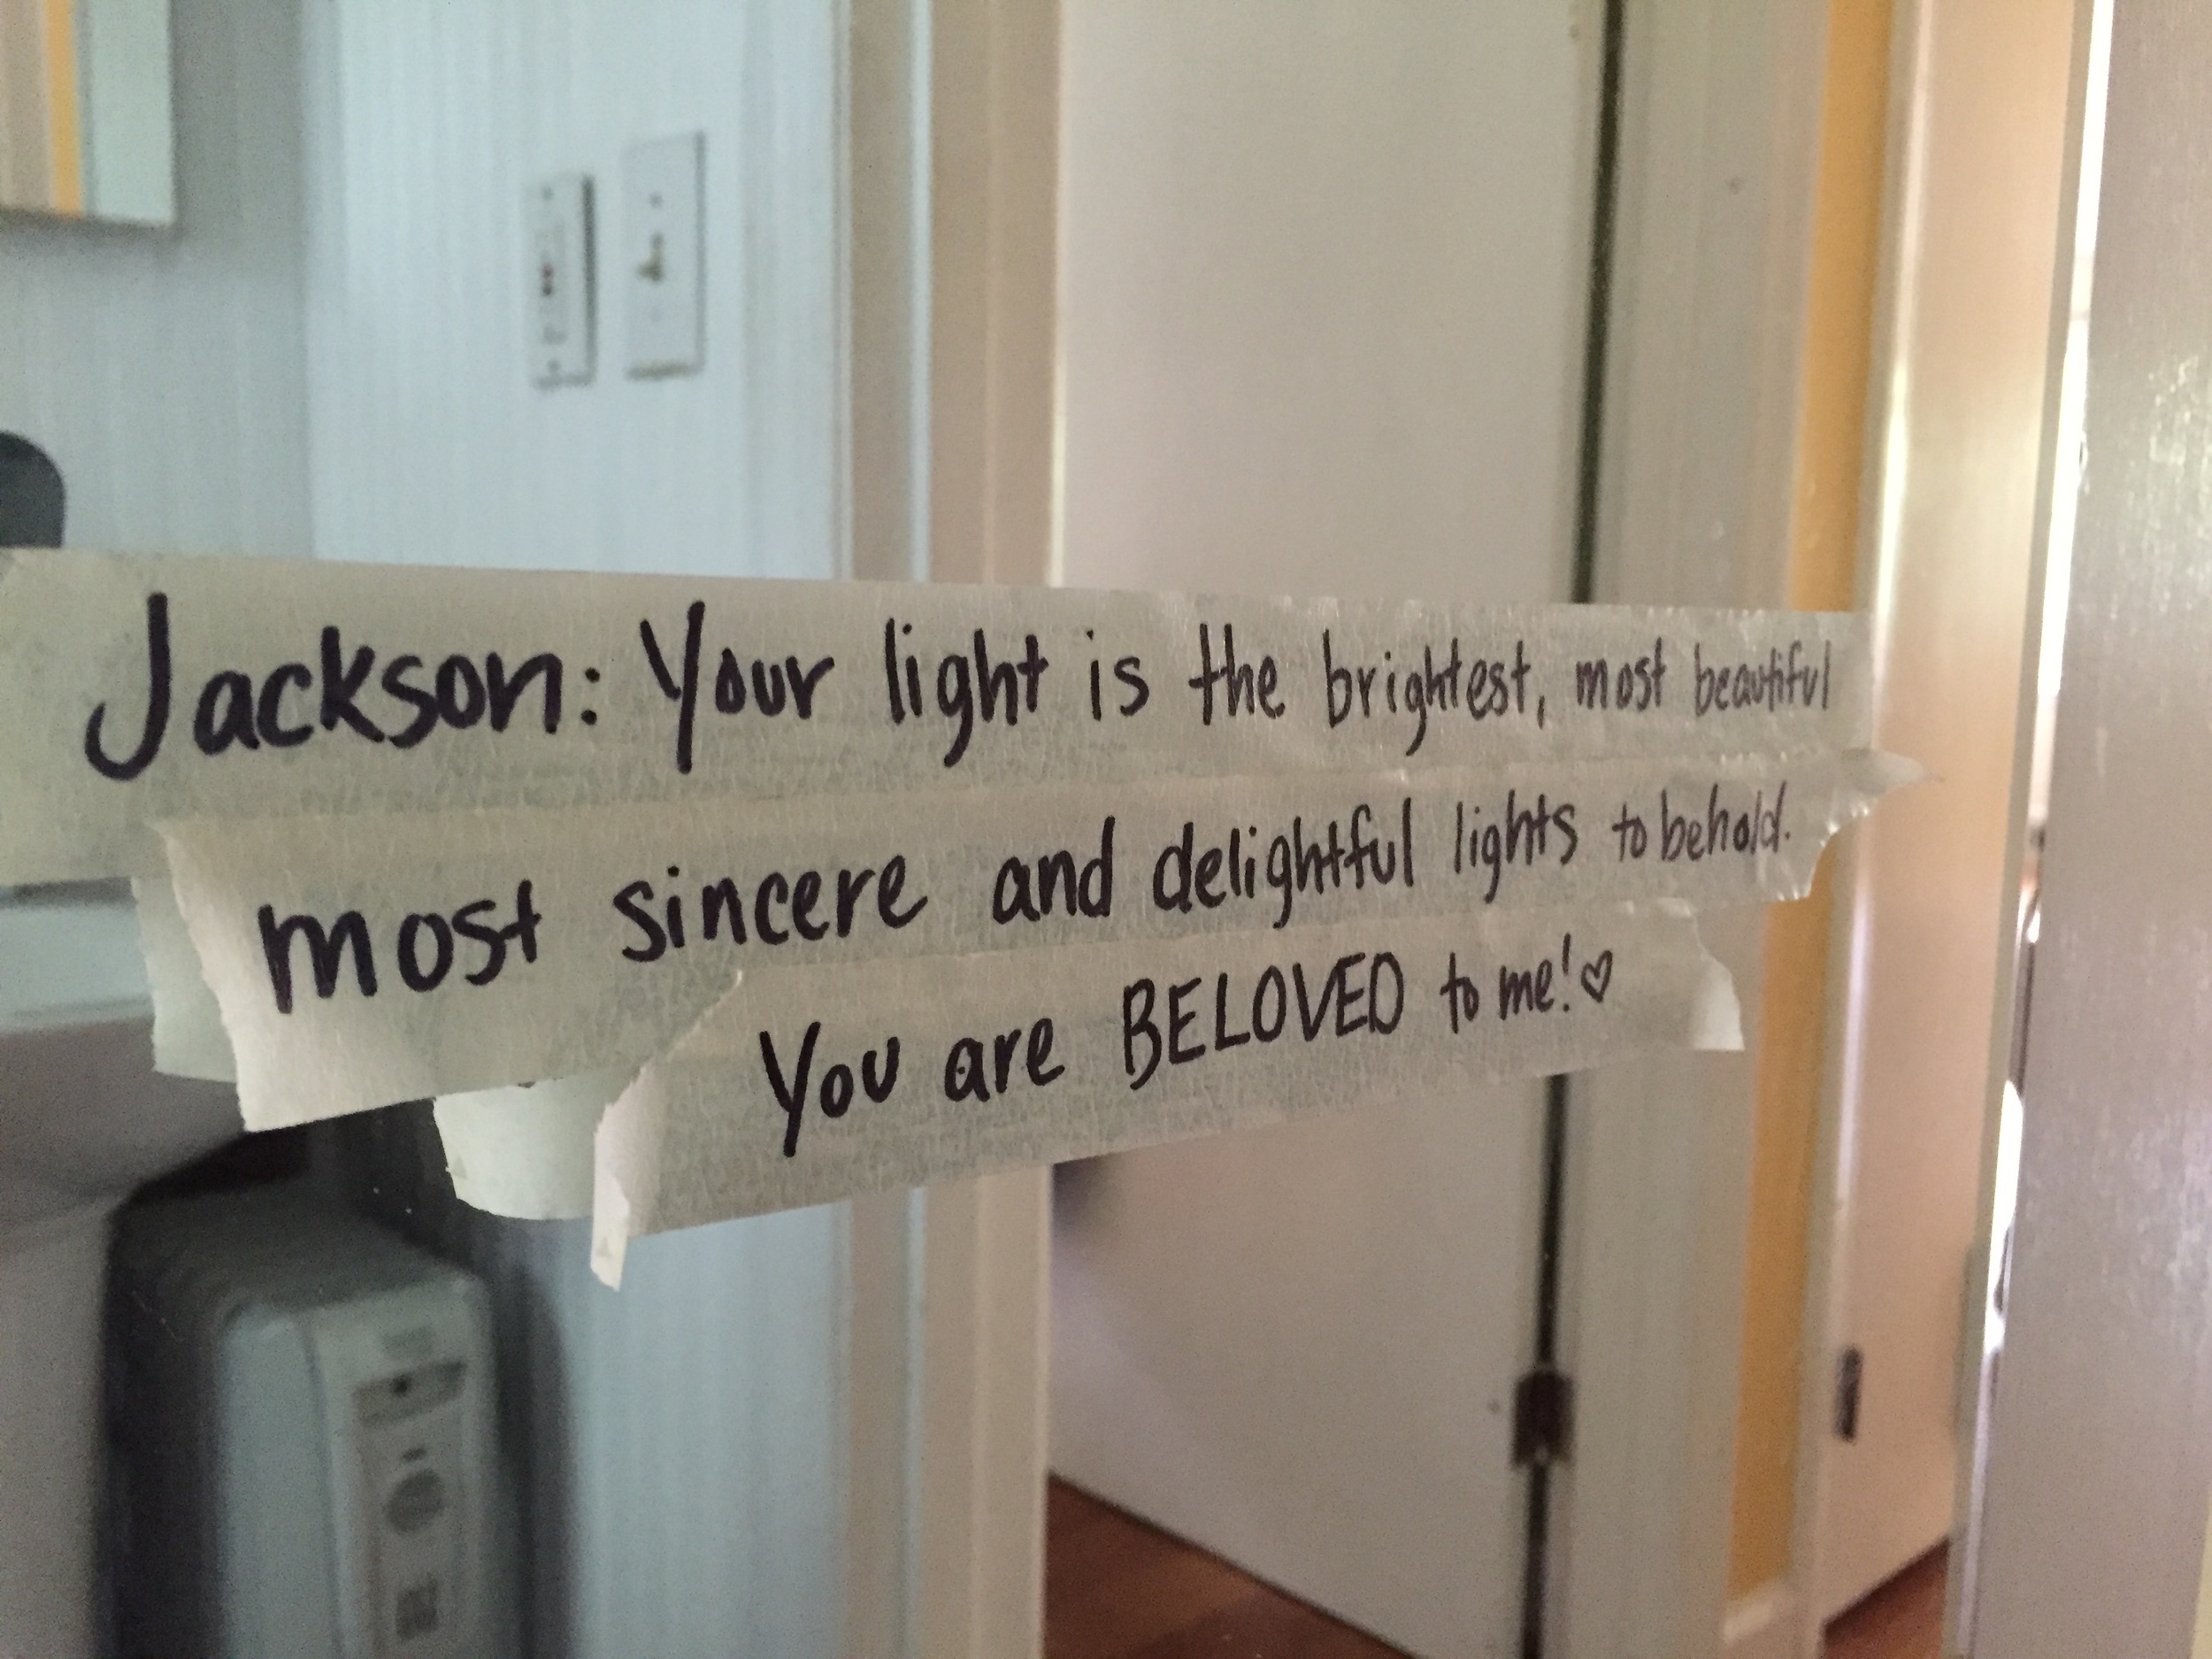 Jackson: Your light is the brightest, most beautiful
most sincere and delightful lights to behold.
You are BELOVED to me!♡